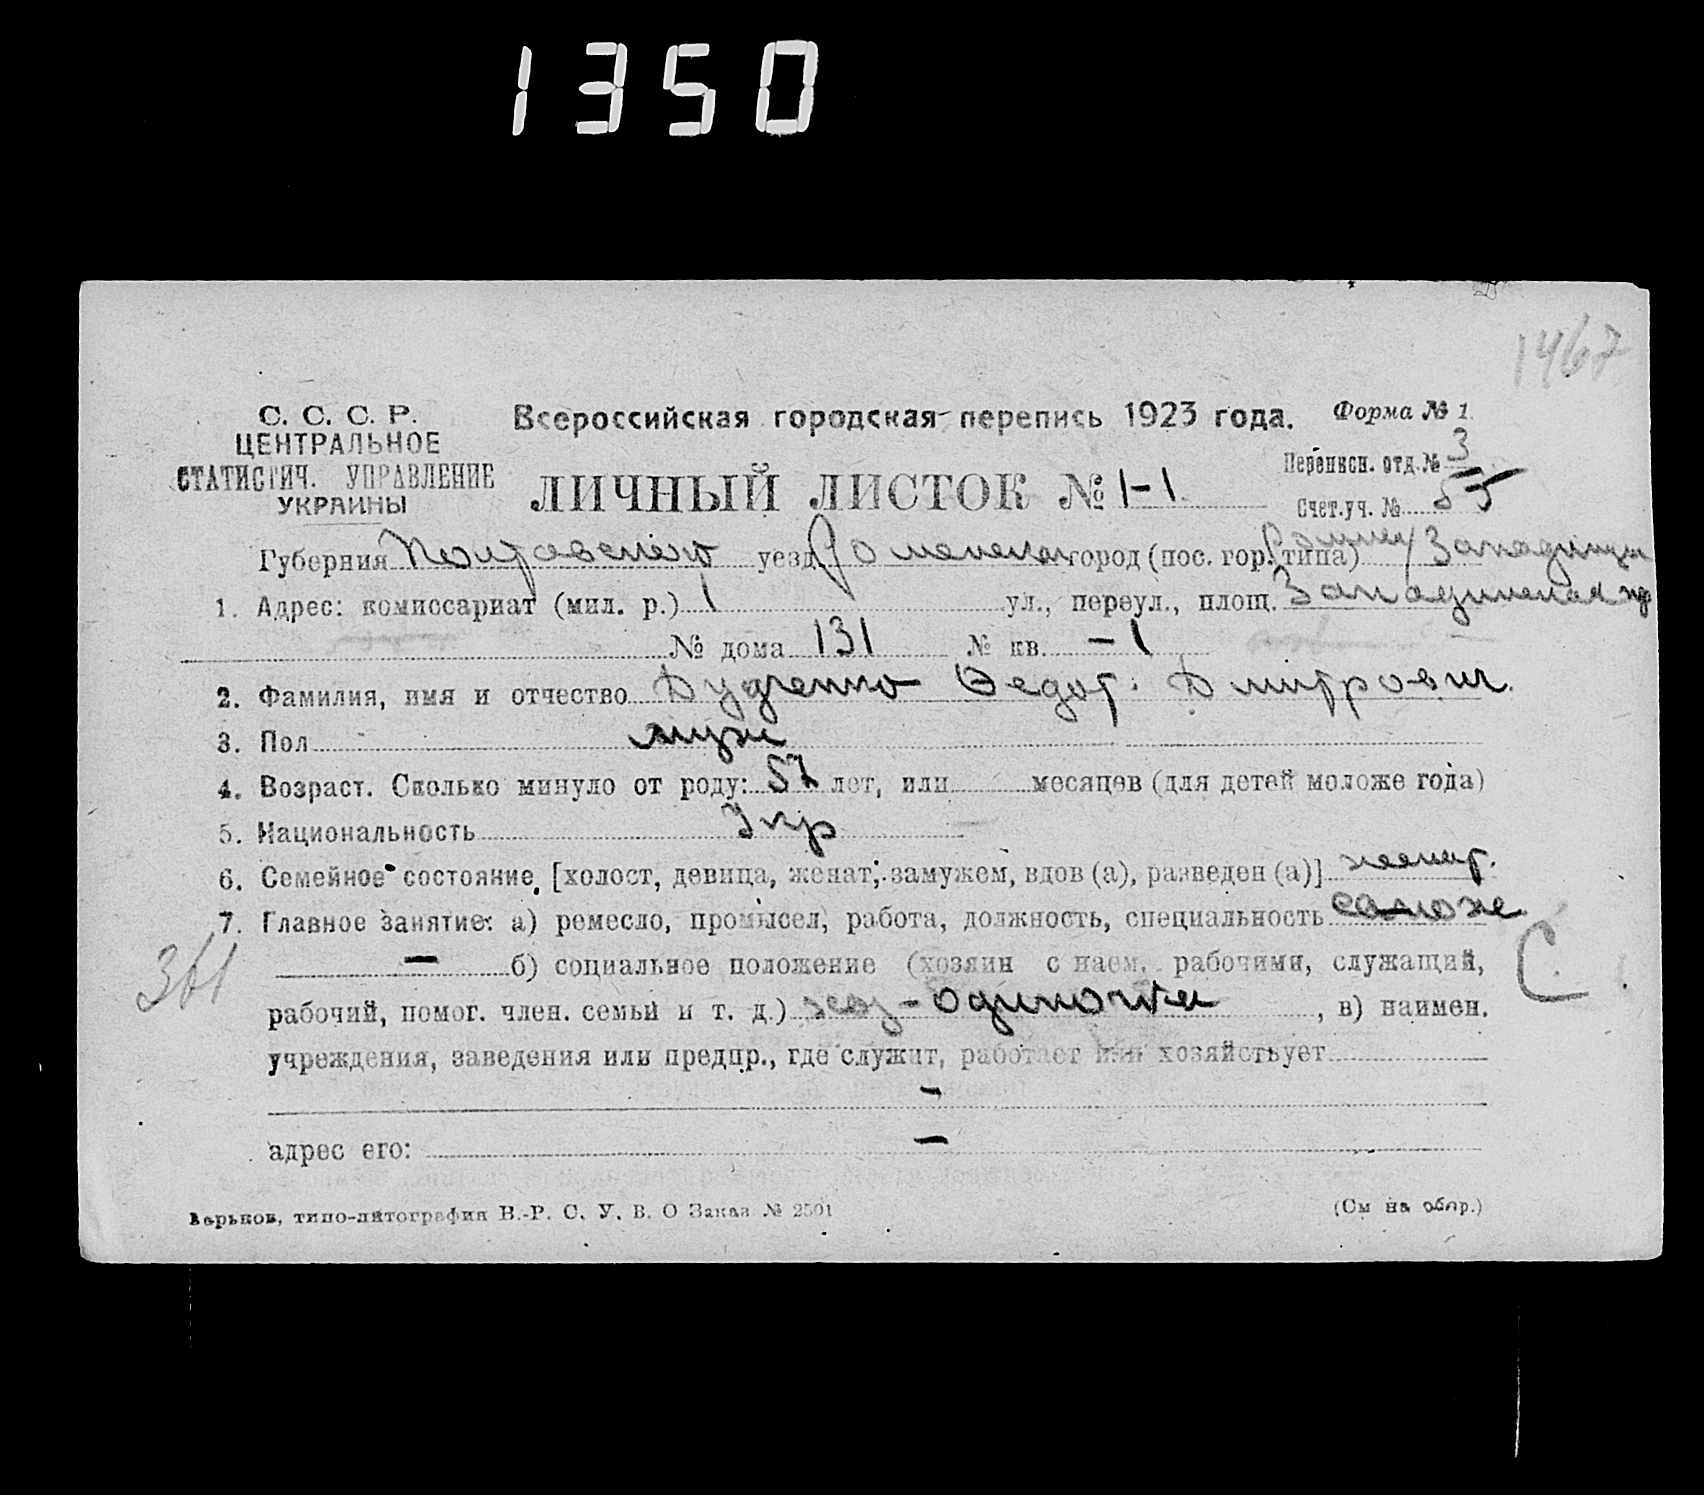 1350
1467
С. С. С. Р.
ЦЕНТРАЛЬНОЕ
СТАТИСТИЧ. УПРАВЛЕНИЕ
УКРАИНЫ
Всероссийская городская перепись 1923 года.
Форма № 1.
ЛИЧНЫЙ ЛИСТОК № 1-1
Переписн. отд. № 3
Счет. уч. № 55
Губерния Полтавской уезд Роменском город (пос. гор. типа) Ромны / Западинцы
1. Адрес: комиссариат (мил. р.) 1 ул., переул., площ. Западинская
№ дома 131 № кв. - 1
2. Фамилия, имя и отчество Дудченко Федот. Дмитрович.
3. Пол муж
4. Возраст. Сколько минуло от роду: 57 лет, или месяцев (для детей моложе года)
5. Национальность Укр
6. Семейное состояние [холост, девица, женат, замужем, вдов (а), разведен (а)] женат.
7. Главное занятие: а) ремесло, промысел, работа, должность, специальность сапожн
361
— б) социальное положение (хозяин с наем. рабочими, служащий,
С.
рабочий, помог. член. семьи и т. д.) хоз - одиночка , в) наимен.
учреждения, заведения или предпр., где служит, работает или хозяйствует
—
адрес его: —
Харьков, типо-литография В.-Р. С. У. В. О Заказ № 2501
(См на обор.)